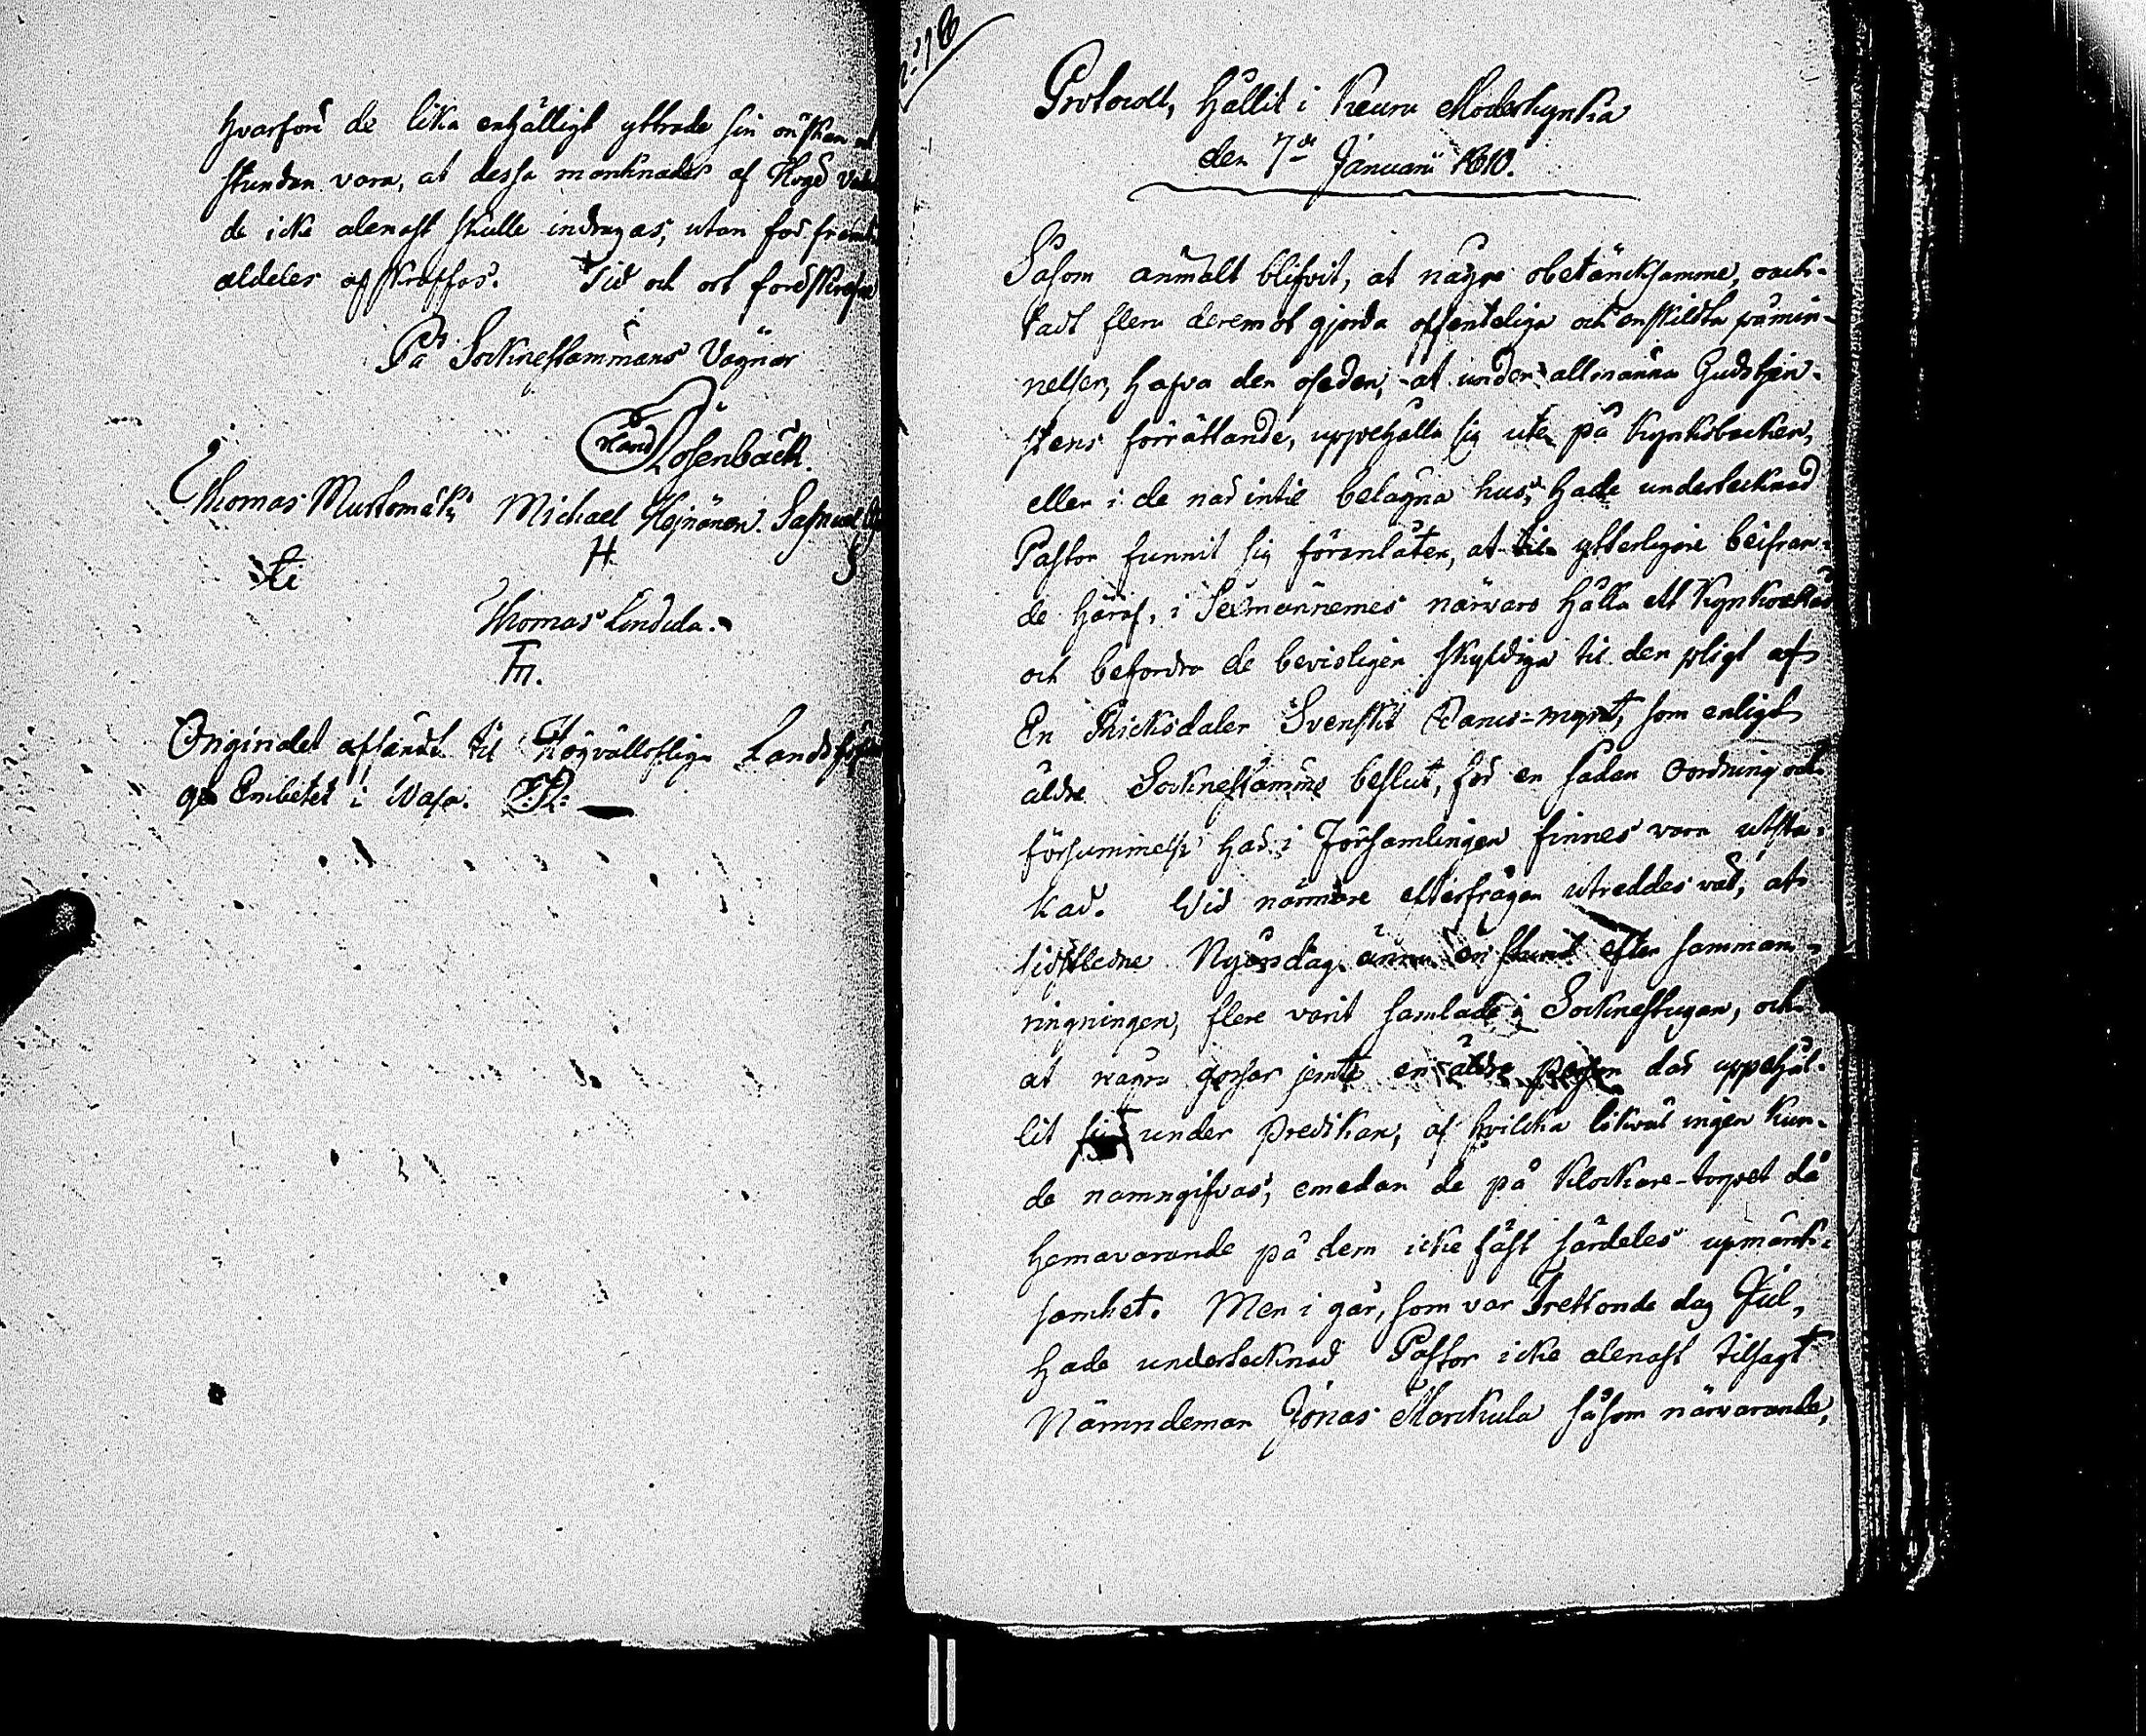 hvarföre de lika enhälligt yttrade sin önskan
stundan vara, at dessa marknader af Höga
de icke alenast skulle indragas, utan för framti
aldeles afskaffas. Tid och ort förrskrefne
På Socknestämmans Vägnar
Rosenbäck.
Thomas Mustomäki Michael HoJnönen. Samuel
ti H S
Thomas Lindula.
Tm.
Originalet afsändt til Högvällofliga Landshöf
ga Embetet i Wasa.
Protocoll, hållit i Keuru Moderkyrka
den 7de Januarii 1810.
Såsom anmält blifvit, at någre obetäncksamme, oack-
tadt flera deremot gjorda offenteliga och enskildta påmin-
nelser, hafva den oseden, at under allmänna Gudstjen-
stens förrättande, uppehålla sig ute på Kyrkobacken,
eller i de när intil belägna hus; hade undertecknad
Pastor funnit sig föranlåten, at til ytterligare beifran-
de häraf, i Sexmännernes närvaro hålla ett Kyrkoråd
och befordra de bevisligen skyldiga til den pligt af
En Ricksdaler Svenskt Banco-mynt, som enligt
äldre Socknestämmo beslut, för en sådan oordning och
försummelse här i Församlingen finnes vara utsta-
kad. Wid närmare efterfrågan utreddes väl, at
sidstledne Nyårsdag ännu en stund efter samman-
ringningen, flere varit samlade i Socknestugan, och
at några gossar jemte en äldre person där uppehål-
lit sig under predikan, af hvilcka likväl ingen kun-
de namngifvas, emedan de på Klockare-torpet då
hemavarande på dem icke fäst särdeles upmärk-
samhet. Men i går, som var Trettonde dag Jul,
hade undertecknad Pastor icke alenast tilsagt
Nämndeman Jonas Markula såsom närvarande,